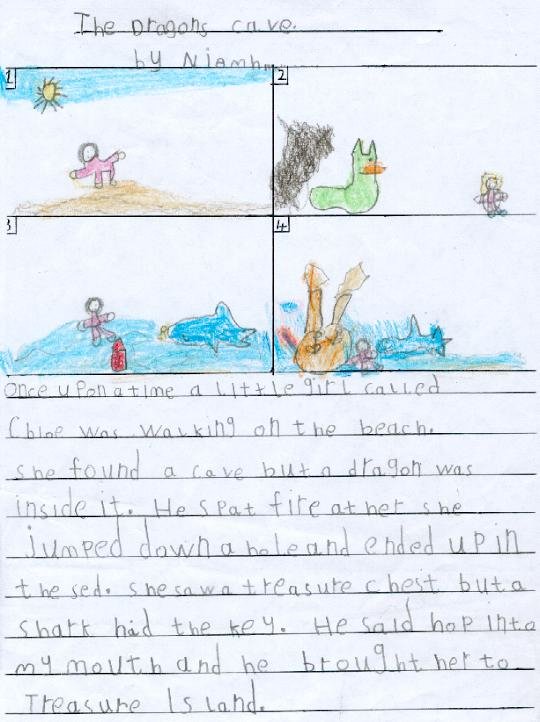 The Dragons cave.
by Niamh
1
2
3
4
Once upon a time a little girl called
Chloe was walking on the beach.
she found a cave but a dragon was
inside it. He spat fire at her she
jumped down a hole and ended up in
the sea. she saw a treasure chest but a
shark had the key. He said hop into
my mouth and he brought her to
Treasure Island.